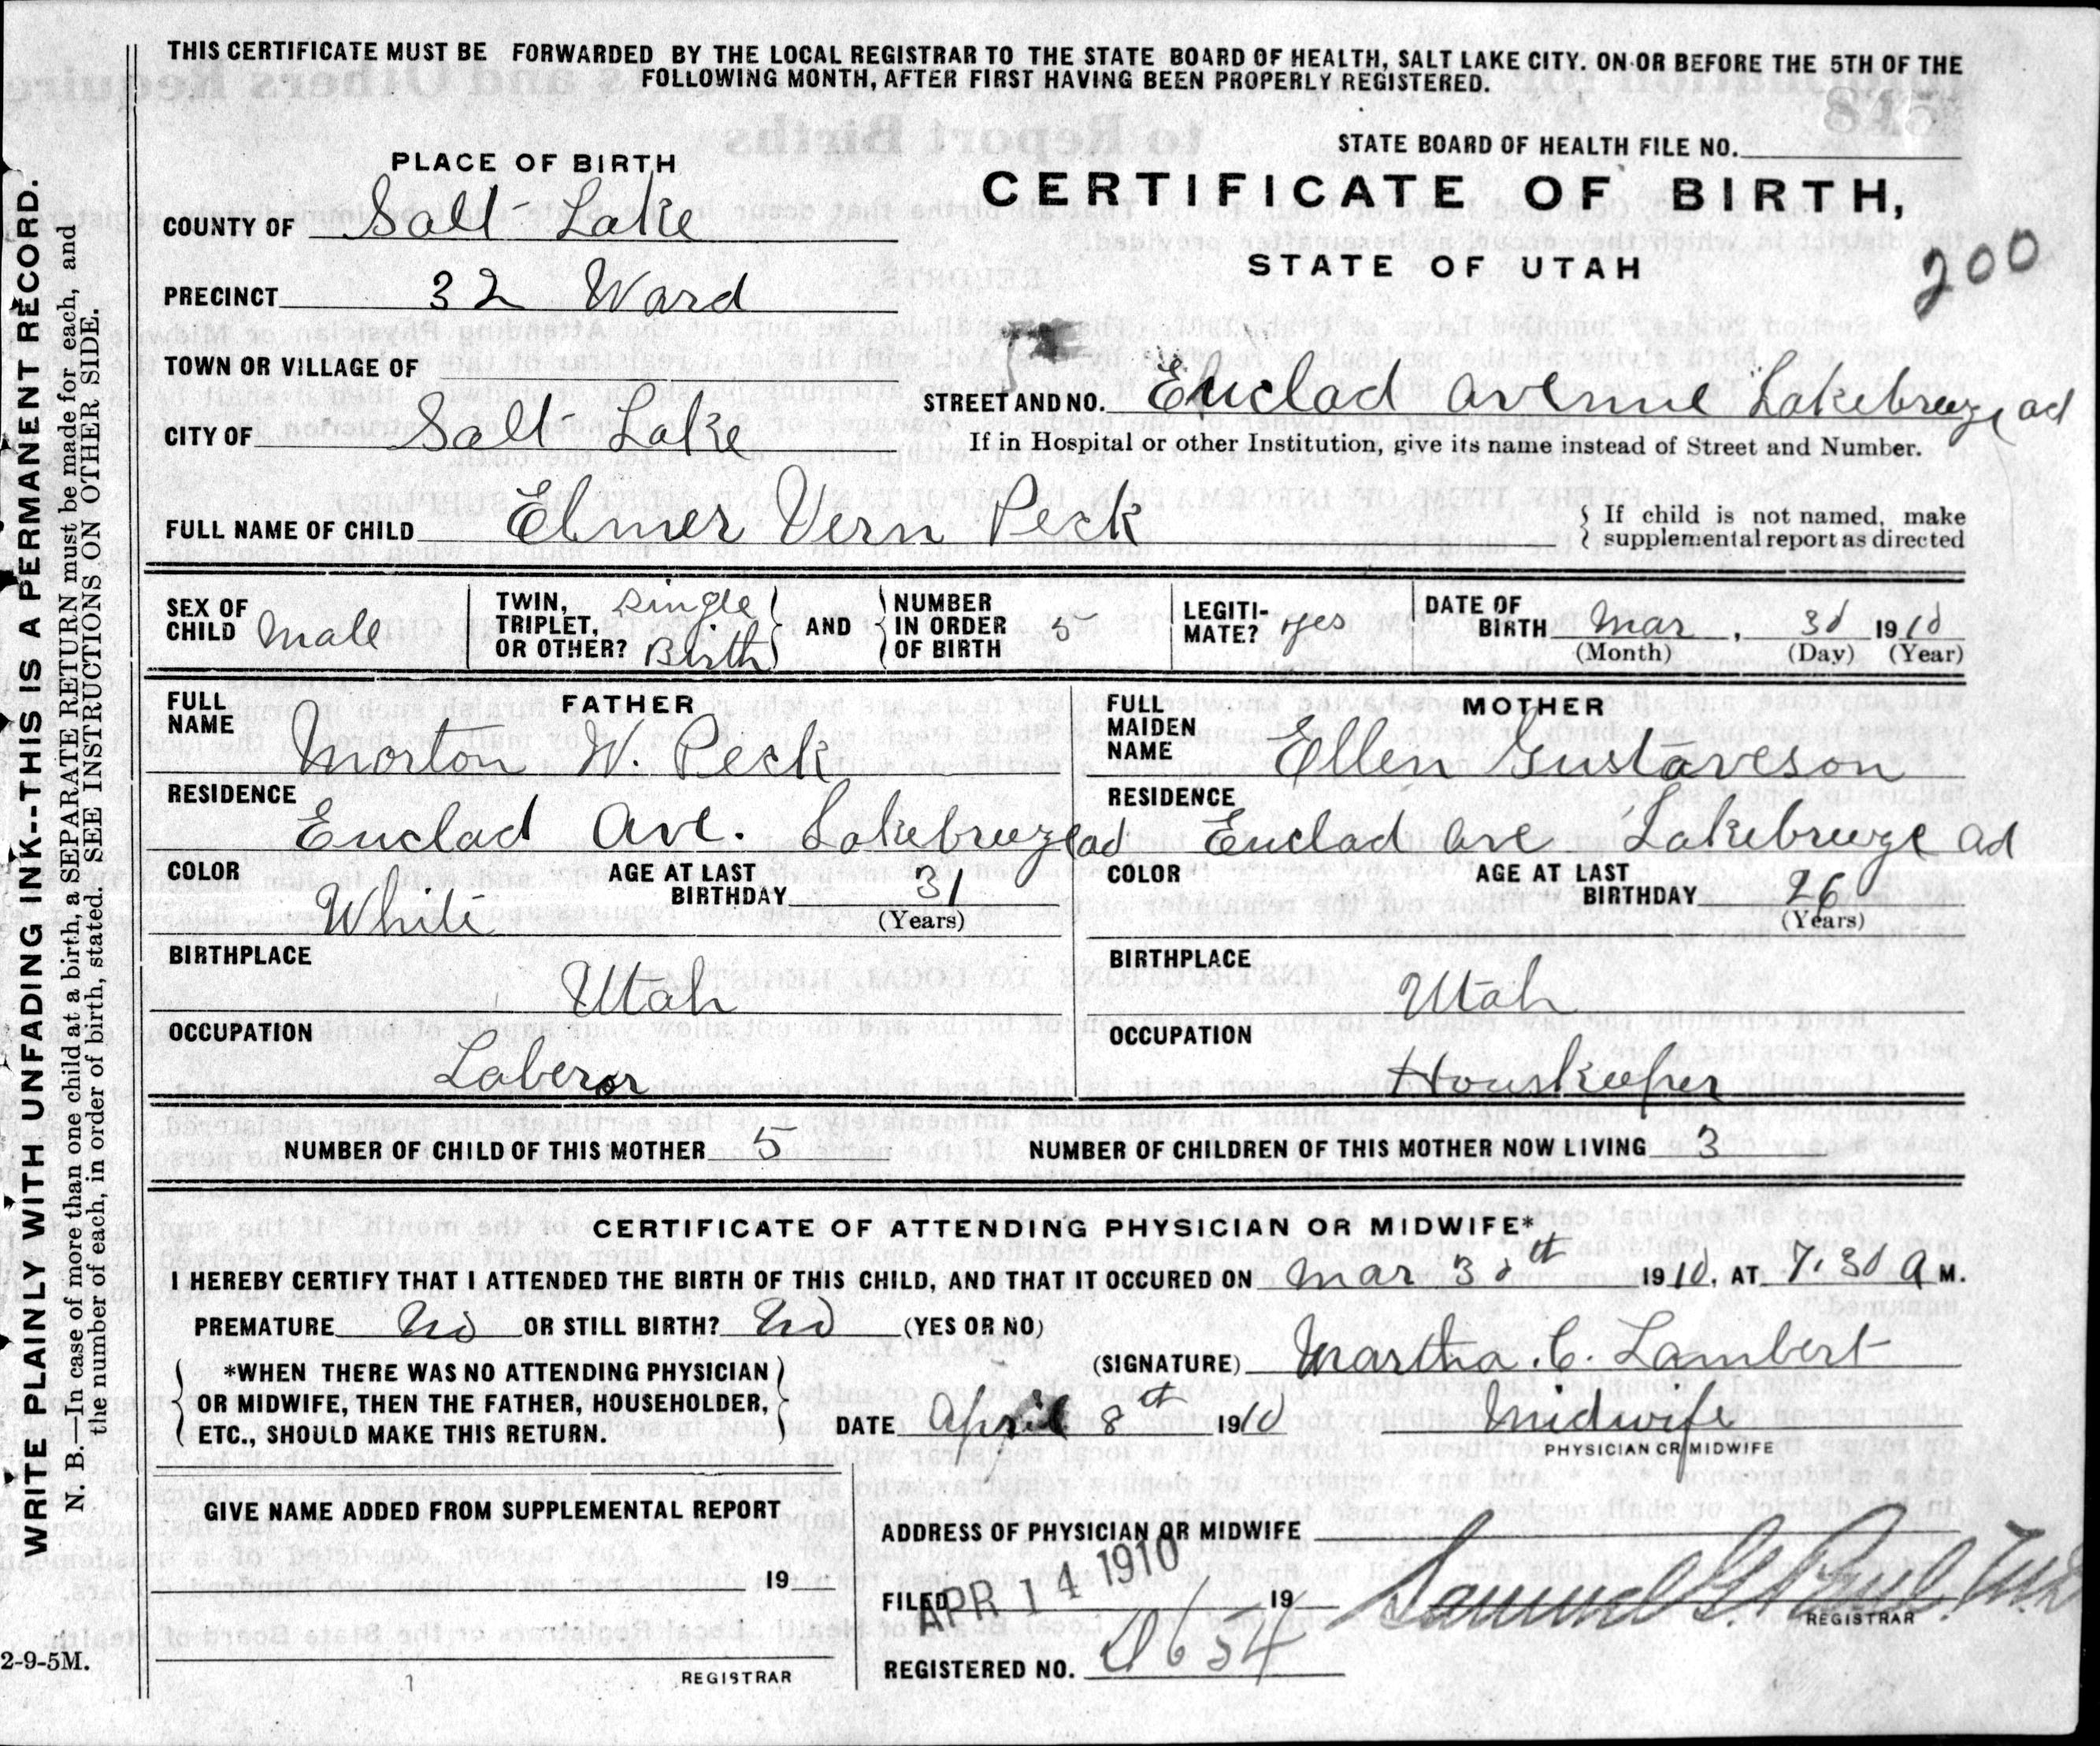 THIS CERTIFICATE MUST BE FORWARDED BY THE LOCAL REGISTRAR TO THE STATE BOARD OF HEALTH, SALT LAKE CITY. ON OR BEFORE THE 5TH OF THE
FOLLOWING MONTH, AFTER FIRST HAVING BEEN PROPERLY REGISTERED.
STATE BOARD OF HEALTH FILE NO.
PLACE OF BIRTH
CERTIFICATE OF BIRTH,
STATE OF UTAH
200
COUNTY OF Salt Lake
PRECINCT 32 Ward
TOWN OR VILLAGE OF
STREET AND NO. Euclad avenue Lakebreeze ad
CITY OF Salt Lake
If in Hospital or other Institution, give its name instead of Street and Number.
FULL NAME OF CHILD Elmer Vern Peck
If child is not named, make
supplemental report as directed
SEX OF CHILD Male
TWIN, TRIPLET, OR OTHER? Single Birth
AND NUMBER IN ORDER OF BIRTH 5
LEGITI-MATE? yes
DATE OF BIRTH Mar, 30 1910
(Month) (Day) (Year)
FATHER
FULL NAME Morton W. Peck
RESIDENCE Euclad Ave. Lakebreeze ad
COLOR White
AGE AT LAST BIRTHDAY 31
(Years)
BIRTHPLACE Utah
OCCUPATION Laberor
MOTHER
FULL MAIDEN NAME Ellen Gustaveson
RESIDENCE Euclad ave Lakebreeze ad
COLOR
AGE AT LAST BIRTHDAY 26
(Years)
BIRTHPLACE Utah
OCCUPATION Houskeeper
NUMBER OF CHILD OF THIS MOTHER 5
NUMBER OF CHILDREN OF THIS MOTHER NOW LIVING 3
CERTIFICATE OF ATTENDING PHYSICIAN OR MIDWIFE*
I HEREBY CERTIFY THAT I ATTENDED THE BIRTH OF THIS CHILD, AND THAT IT OCCURED ON Mar 30th 1910, AT 7.30 A M.
PREMATURE No OR STILL BIRTH? No (YES OR NO)
*WHEN THERE WAS NO ATTENDING PHYSICIAN
OR MIDWIFE, THEN THE FATHER, HOUSEHOLDER,
ETC., SHOULD MAKE THIS RETURN.
(SIGNATURE) Martha. C. Lambert
DATE April 8th 1910
Midwife
PHYSICIAN OR MIDWIFE
GIVE NAME ADDED FROM SUPPLEMENTAL REPORT
19
REGISTRAR
ADDRESS OF PHYSICIAN OR MIDWIFE
FILED APR 14 1910 19
Samuel G. Paul
REGISTRAR
REGISTERED NO.
WRITE PLAINLY WITH UNFADING INK--THIS IS A PERMANENT RECORD.
N. B.—In case of more than one child at a birth, a SEPARATE RETURN must be made for each, and
the number of each, in order of birth, stated. SEE INSTRUCTIONS ON OTHER SIDE.
2-9-5M.